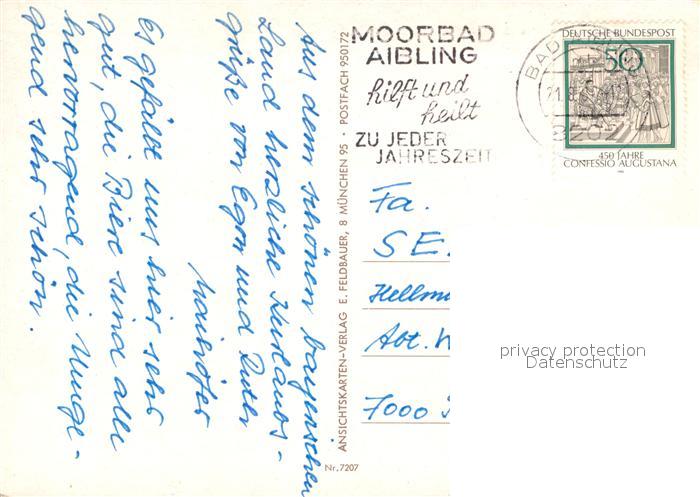 Aus dem schönen bayerischen
Land herzliche Kurlaubs-
grüße von Egon und Ruth
Es gefällt uns hier sehr
gut, die Biere sind alle
hervorragend, die Umge-
gend sehr schön.
ANSICHTSKARTEN-VERLAG E. FELDBAUER, 8 MÜNCHEN 95 · POSTFACH 950172
Nr. 7207
MOORBAD
AIBLING
hilft und
heilt
ZU JEDER
JAHRESZEIT
BAD
8202
DEUTSCHE BUNDESPOST
50
450 JAHRE
CONFESSIO AUGUSTANA
Fa.
SE.
Hellm
Abt.
7000
privacy protection
Datenschutz